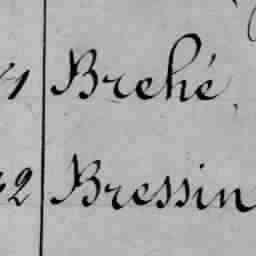 1 Brehé
2 Bressin